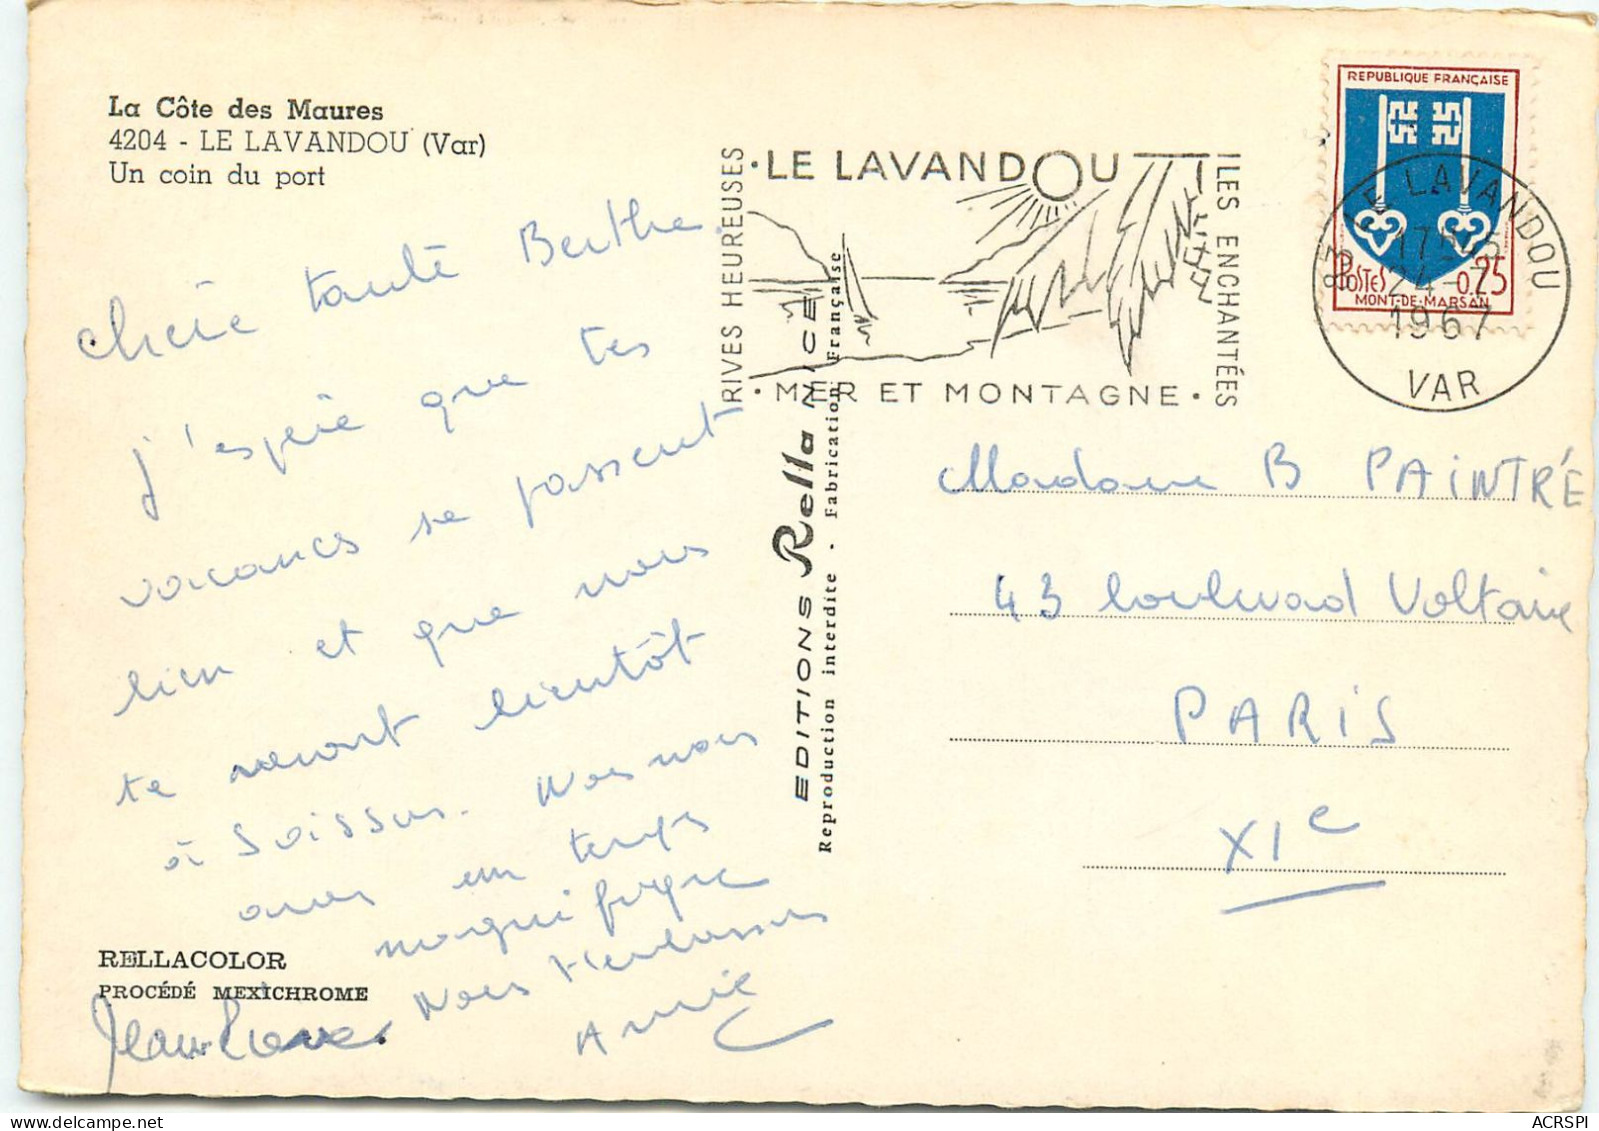 La Côte des Maures
4204 - LE LAVANDOU (Var)
Un coin du port
Chère tante Berthe.
j'espère que tes
vacances se passent
bien et que nous
te verront bientôt
à Soissons. Nous nous
avons un temps
magnifique
Nous t'embrassons
Annie
Jean Pierre
RELLACOLOR
PROCÉDÉ MEXICHROME
EDITIONS Rella NICE
Reproduction interdite - Fabrication Française
RIVES HEUREUSES
• LE LAVANDOU
ILES ENCHANTÉES
• MER ET MONTAGNE •
REPUBLIQUE FRANÇAISE
POSTES 0,25
MONT-DE-MARSAN
83 LE LAVANDOU
17H45
24-7
1967
VAR
Madame B PAINTRÉ
43 boulevard Voltaire
PARIS
XIe
ACRSPI
delcampe.net